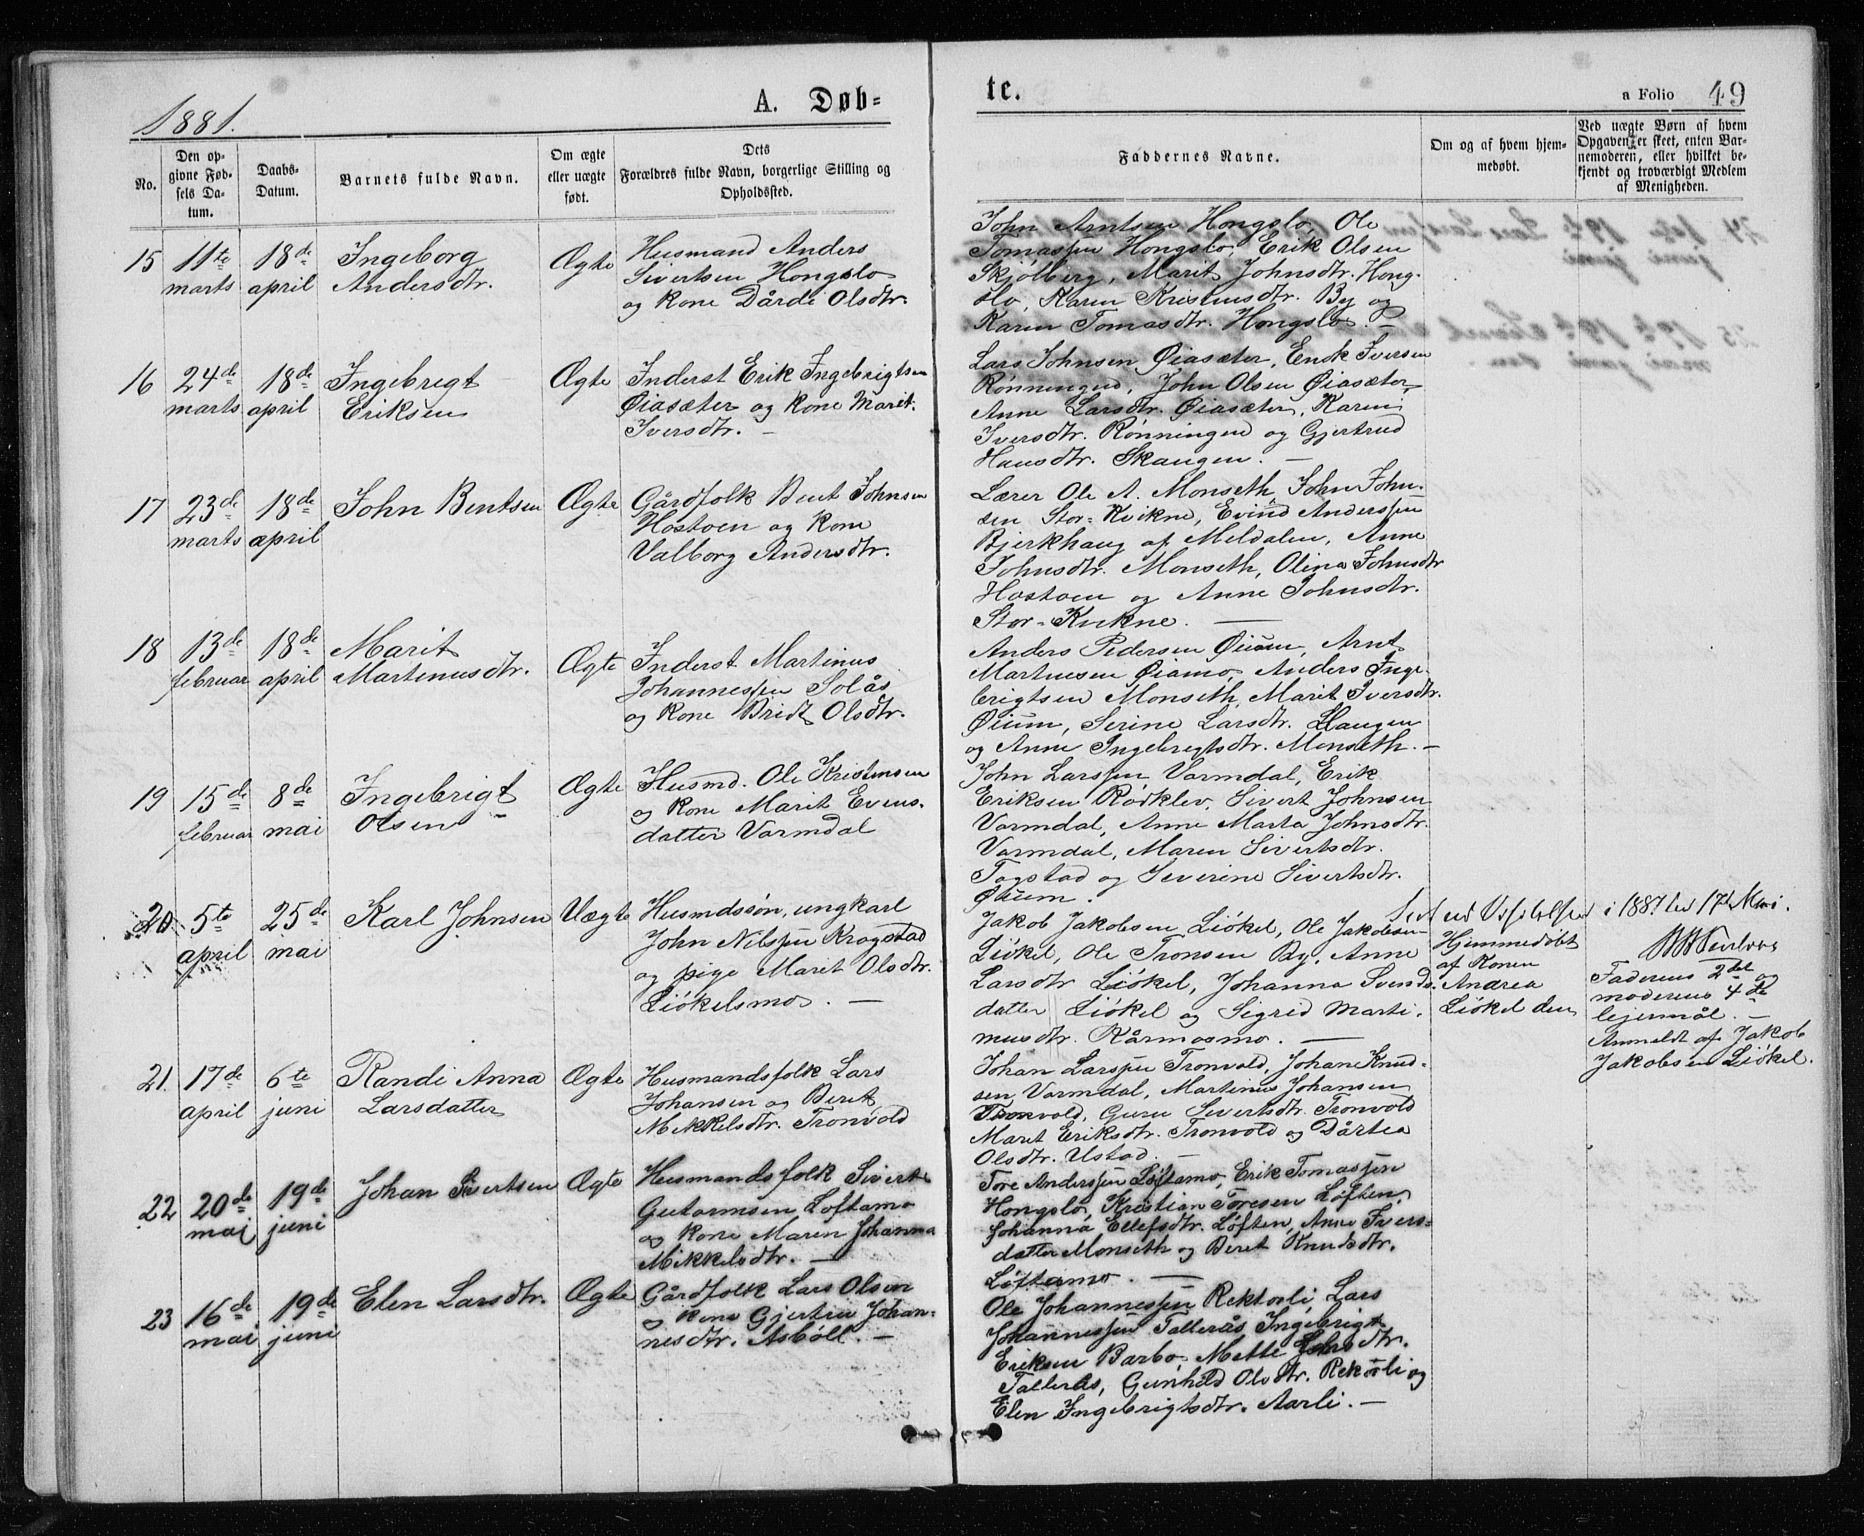 1881.
A. Døb=
te.
a Folio 49
No.
Den op=
givne Fød=
sels Da=
tum.
Daabs=
Datum.
Barnets fulde Navn.
Om ægte
eller uægte
født.
Dets
Forældres fulde Navn, borgerlige Stilling og
Opholdssted.
Faddernes Navne.
Om og af hvem hjem=
medøbt.
Ved uægte Børn af hvem
Opgaven er skeet, enten Bar=
nemoderen, eller hvilket be=
kjendt og troværdigt Medlem
af Menigheden.
15
11te
marts
18de
april
Ingeborg
Andersdtr.
Ægte
Husmand Anders
Sivertsen Hongslo
og kone Dårdi Olsdtr.
John Arntsen Hongslo, Ole
Tomassen Hongslo, Erik Olsen
Skjølberg, Marit Johnsdtr. Hong-
slo, Karen Kristensdtr. By og
Karen Tomasdtr. Hongslo. —
16
24de
marts
18de
april
Ingebrigt
Eriksen
Ægte
Inderst Erik Ingebrigtsen
Øiasæter og kone Marit
Iversdtr. —
Lars Johnsen Øiasæter, Enok Iversen
Rønningen, John Olsen Øiasæter,
Anne Larsdtr. Øiasæter, Karen
Iversdtr. Rønningen og Gjertrud
Hansdtr. Skaugen. —
17
23de
marts
18de
april
John Bentsen
Ægte
Gårdfolk Bent Johnsen
Hostoen og kone
Valborg Andersdtr.
Lærer Ole A. Monseth, John John-
sen Stor=Kvikne, Evind Anderssen
Bjerkhaug af Meldalen, Anne
Johnsdtr. Monseth, Olina Johnsdtr
Hostoen og Anne Johnsdtr.
Stor=Kvikne. —
18
13de
februar
18de
april
Marit
Martinusdtr.
Ægte
Inderst Martinus
Johannessen Solås
og kone Bridt Olsdtr.
Anders Pedersen Øium, Arnt
Martinesen Øiamo, Anders Inge-
brigtsen Monseth, Marit Iversdtr.
Øium, Serine Larsdtr. Haugen
og Anne Ingebrigtsdtr. Monseth. —
19
15de
februar
8de
mai
Ingebrigt
Olsen
Ægte
Husmd. Ole Kristensen
og kone Marit Evens-
datter Varmdal
John Larssen Varmdal, Erik
Eriksen Rødklev, Sivert Johnsen
Varmdal, Anne Marta Johnsdtr.
Varmdal, Maren Sivertsdtr.
Togstad og Severine Sivertsdtr.
Øium.
20
5te
april
25de
mai
Karl Johnsen
Uægte
Husmdssøn, ungkarl
John Nilssen Krogstad
og pige Marit Olsdtr.
Liøkelsmo. —
Jakob Jakobsen Liøkel, Ole Jakobsen
Liøkel, Ole Tronsen By, Anne
Larsdtr Liøkel, Johanna Svends-
datter Liøkel og Sigrid Marti-
nusdtr. Kårmosmo. —
i 1887 17de Mai.
Hjemmedøbt
af Konen
Andrea
Liøkel den
Faderens 2det og
moderens 4de
lejermål. —
Anmeldt af Jakob
Jakobsen Liøkel.
21.
17de
april
6te
juni
Randi Anna
Larsdatter
Ægte
Husmandsfolk Lars
Johansen og Beret
Mikkelsdtr. Tronvold
Johan Larssen Tronvold, Johan Knud-
sen Varmdal, Martinus Johansen
Tronvold, Guru Sivertsdtr. Tronvold
Marit Eriksdtr. Tronvold og Dårtea
Olsdtr. Ustad. —
22
20de
mai
19de
juni
Johan Sivertsen
Ægte
Husmandsfolk Sivert
Gutormsen Løftamo
og kone Maren Johanna
Mikkelsdtr. —
Tore Anderssen Løftamo, Erik Tomassen
Hongslo, Kristian Toresen Løften,
Johanna Ellefsdtr. Løften, Anne Ivers=
datter Monseth og Beret Knudsdtr.
Løftamo. —
23
16de
mai
19de
juni
Elen Larsdtr.
Ægte
Gårdfolk Lars Olsen
og kone Gjertru Johan-
nesdtr. Asbøll. —
Ole Johannessen Rektorli, Lars
Johannessen Tallerås, Ingebrigt
Eriksen Barbo, Mette Johsdtr.
Tallerås, Gunhild Olsdtr. Rekorli og
Elen Ingebrigtsdtr. Aarli. —